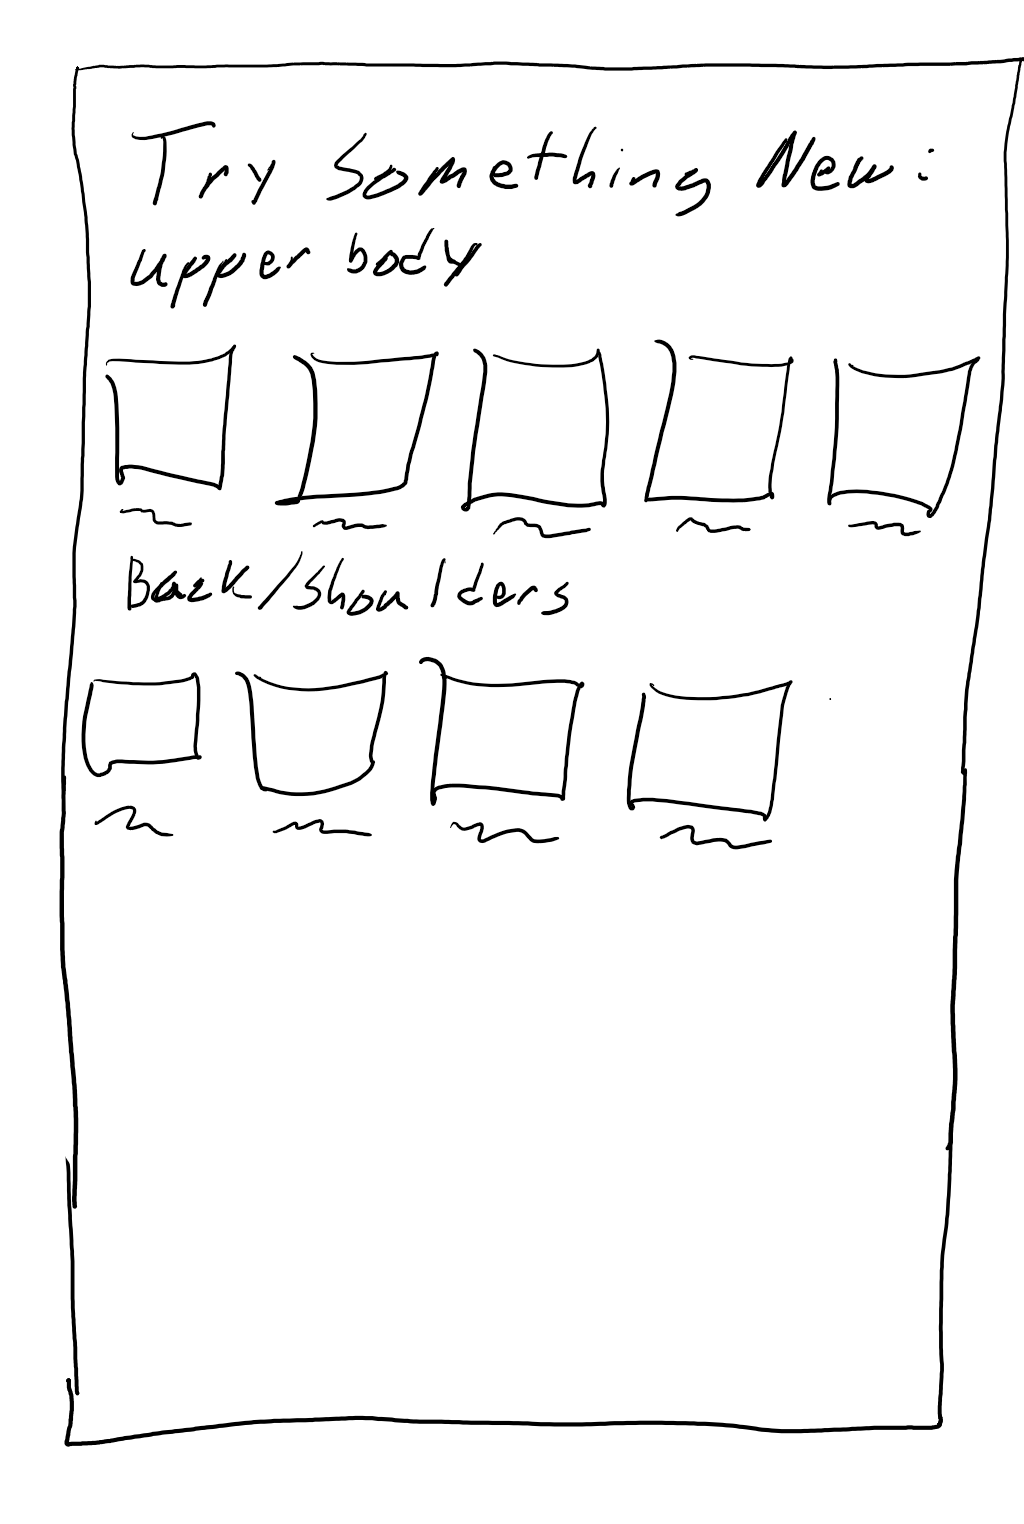 Try Something New:
upper body
Back/Shoulders